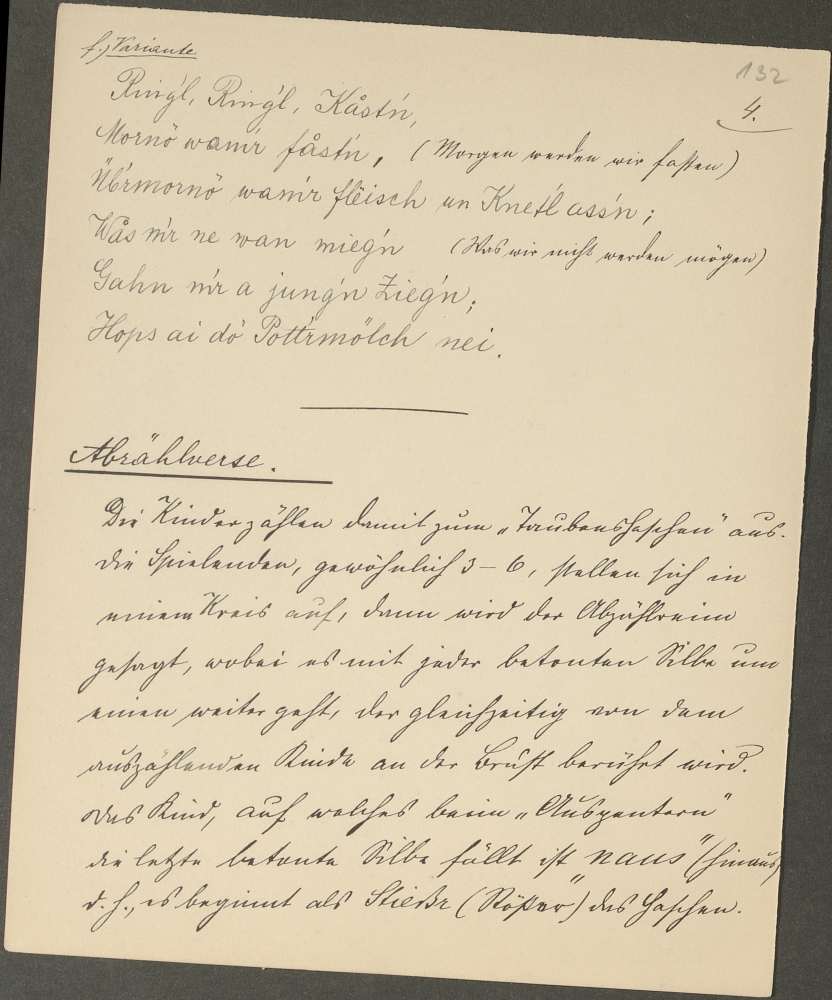 f.) Variante
132
4.
Ring'l, Ring'l, Kåst'n,
Mornö wam'r fåst'n, (Morgen werden wir fasten)
Üb'rmornö wam'r flëisch un Knet'l ass'n;
Wås m'r ne wan mieg'n (Was wir nicht werden mögen)
Gahn m'r a jung'n Zieg'n;
Hops ai dö Pott'rmölch nei.
Abzählverse.
Die Kinder zählen damit zum „Taubenhaschen" aus.
die Spielenden, gewöhnlich 3–6, stellen sich in
einem Kreis auf, dann wird der Abzählreim
gesagt, wobei es mit jeder betonten Silbe um
einen weiter geht, der gleichzeitig von dem
auszählenden Kinde an der Brust berührt wird.
Das Kind, auf welches beim „Auspentern"
die letzte betonte Silbe fällt ist „naus" (hinaus)
d. h., es beginnt als (Stößer) das Haschen.